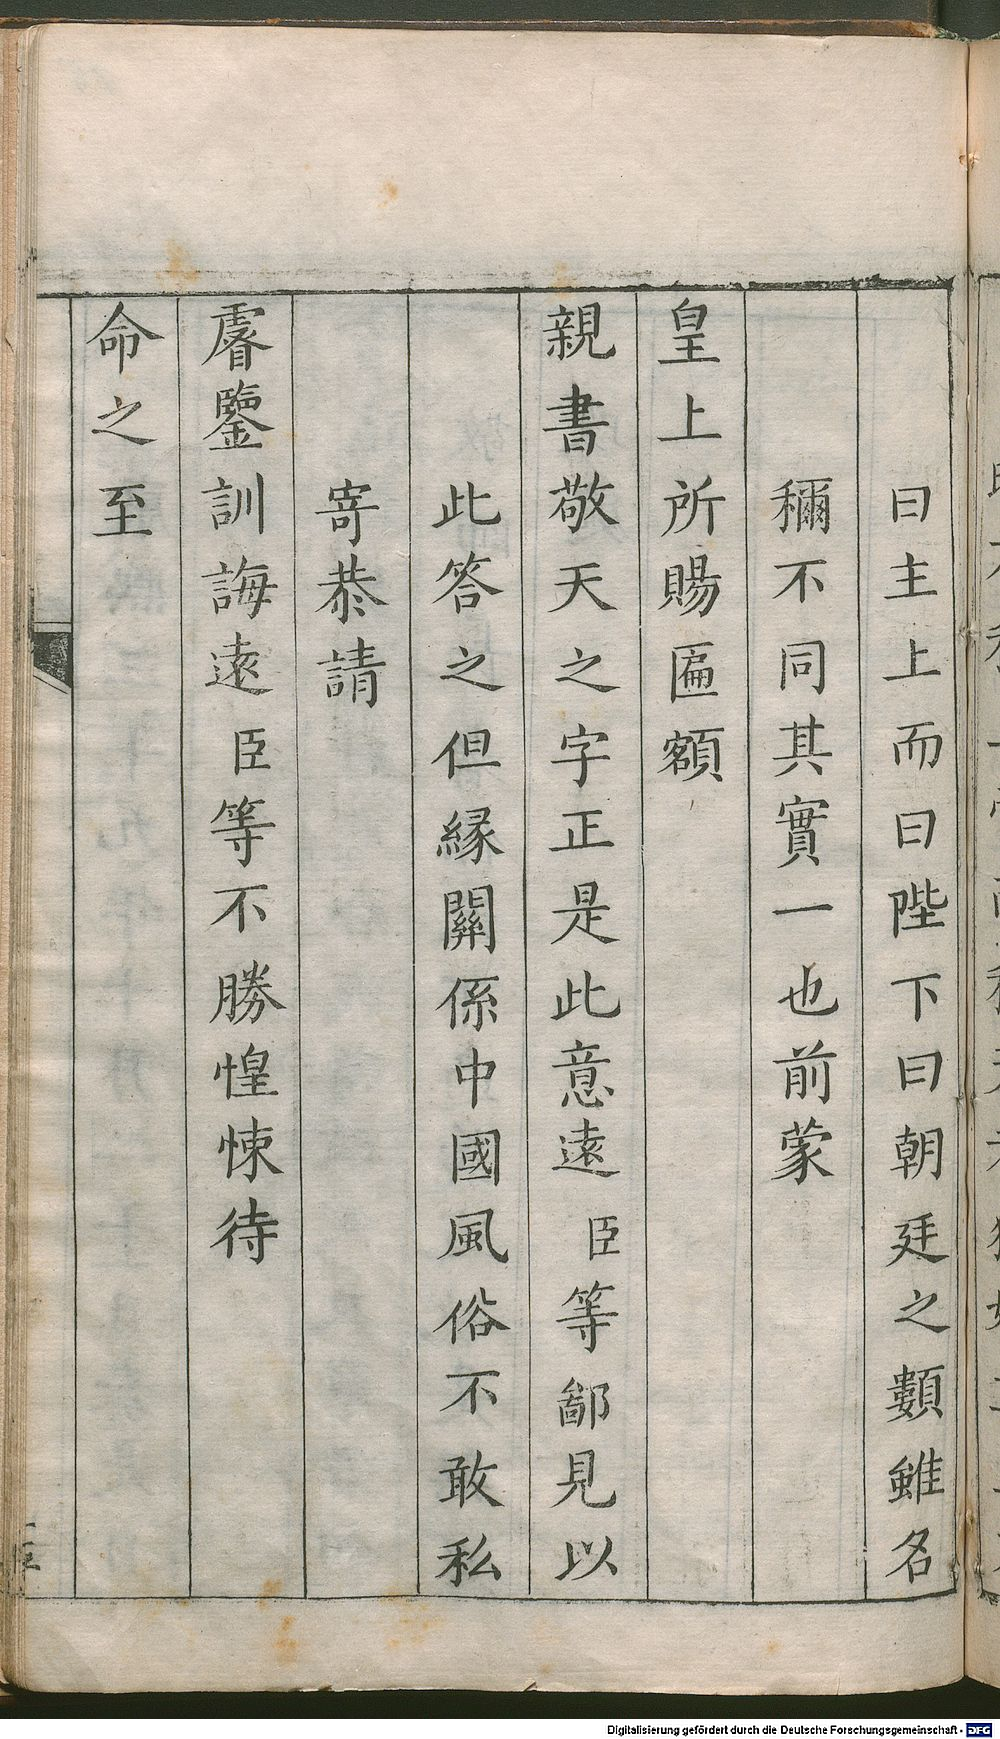 曰主上而曰陛下曰朝廷之類雖名
穪不同其實一也前蒙
皇上所賜匾額
親書敬天之字正是此意遠臣等鄙見以
此答之但緣關係中國風俗不敢私
寄恭請
睿鑒訓誨遠臣等不勝惶悚待
命之至
Digitalisierung gefördert durch die Deutsche Forschungsgemeinschaft - DFG